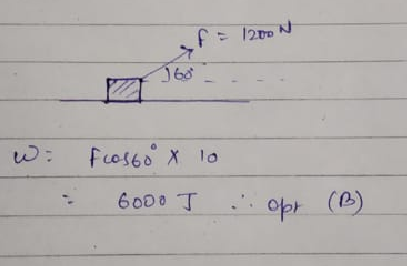 F = 1200 N
60°
W = Fcos60° × 10
= 6000 J ∴ opt (B)